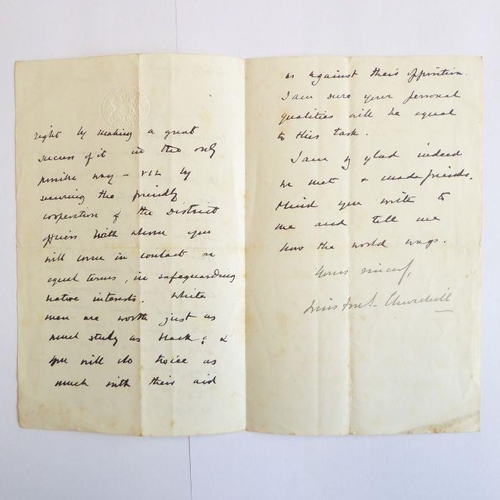 right by making a great
success of it in the only
possible way – viz by
securing the friendly
cooperation of the District
officers with whom you
will come in contact on
equal terms, in safeguarding
native interests. White
men are worth just as
much study as black; &
you will do twice as
much with their aid
as against their opposition.
I am sure your personal
qualities will be equal
to this task.
I am so glad indeed
we met & made friends.
Mind you write to
me and tell me
how the world wags.
Yours sincerely,
Winston S. Churchill